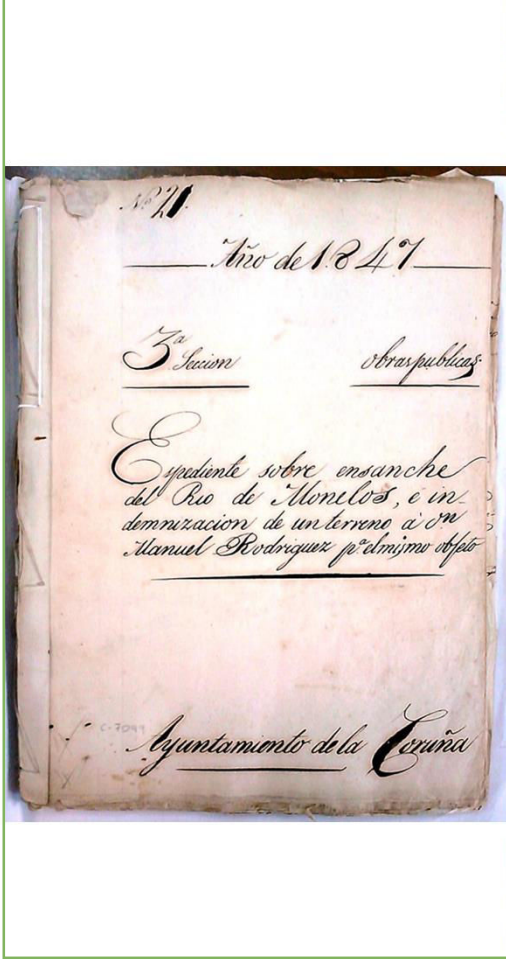 Nº 21.
Año de 1.847
3ª Seccion obras publicas
Espediente sobre ensanche
del Rio de Monelos, é in-
demnizacion de un terreno á Dn
Manuel Rodriguez pª el mismo objeto
C-7044
Ayuntamiento de la Coruña